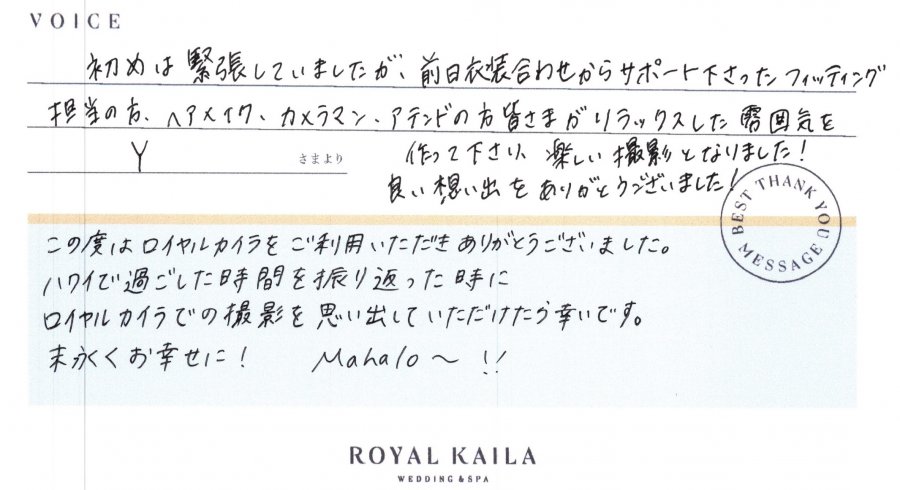 VOICE
初めは緊張していましたが、前日衣装合わせからサポート下さったフィッティング
担当の方、ヘアメイク、カメラマン、アテンドの方皆さまがリラックスした雰囲気を
Y さまより 作って下さり、楽しい撮影となりました!
良い想い出をありがとうございました!
BEST THANK YOU MESSAGE
この度はロイヤルカイラをご利用いただきありがとうございました。
ハワイで過ごした時間を振り返った時に
ロイヤルカイラでの撮影を思い出していただけたら幸いです。
末永くお幸せに! Mahalo～!!
ROYAL KAILA
WEDDING & SPA